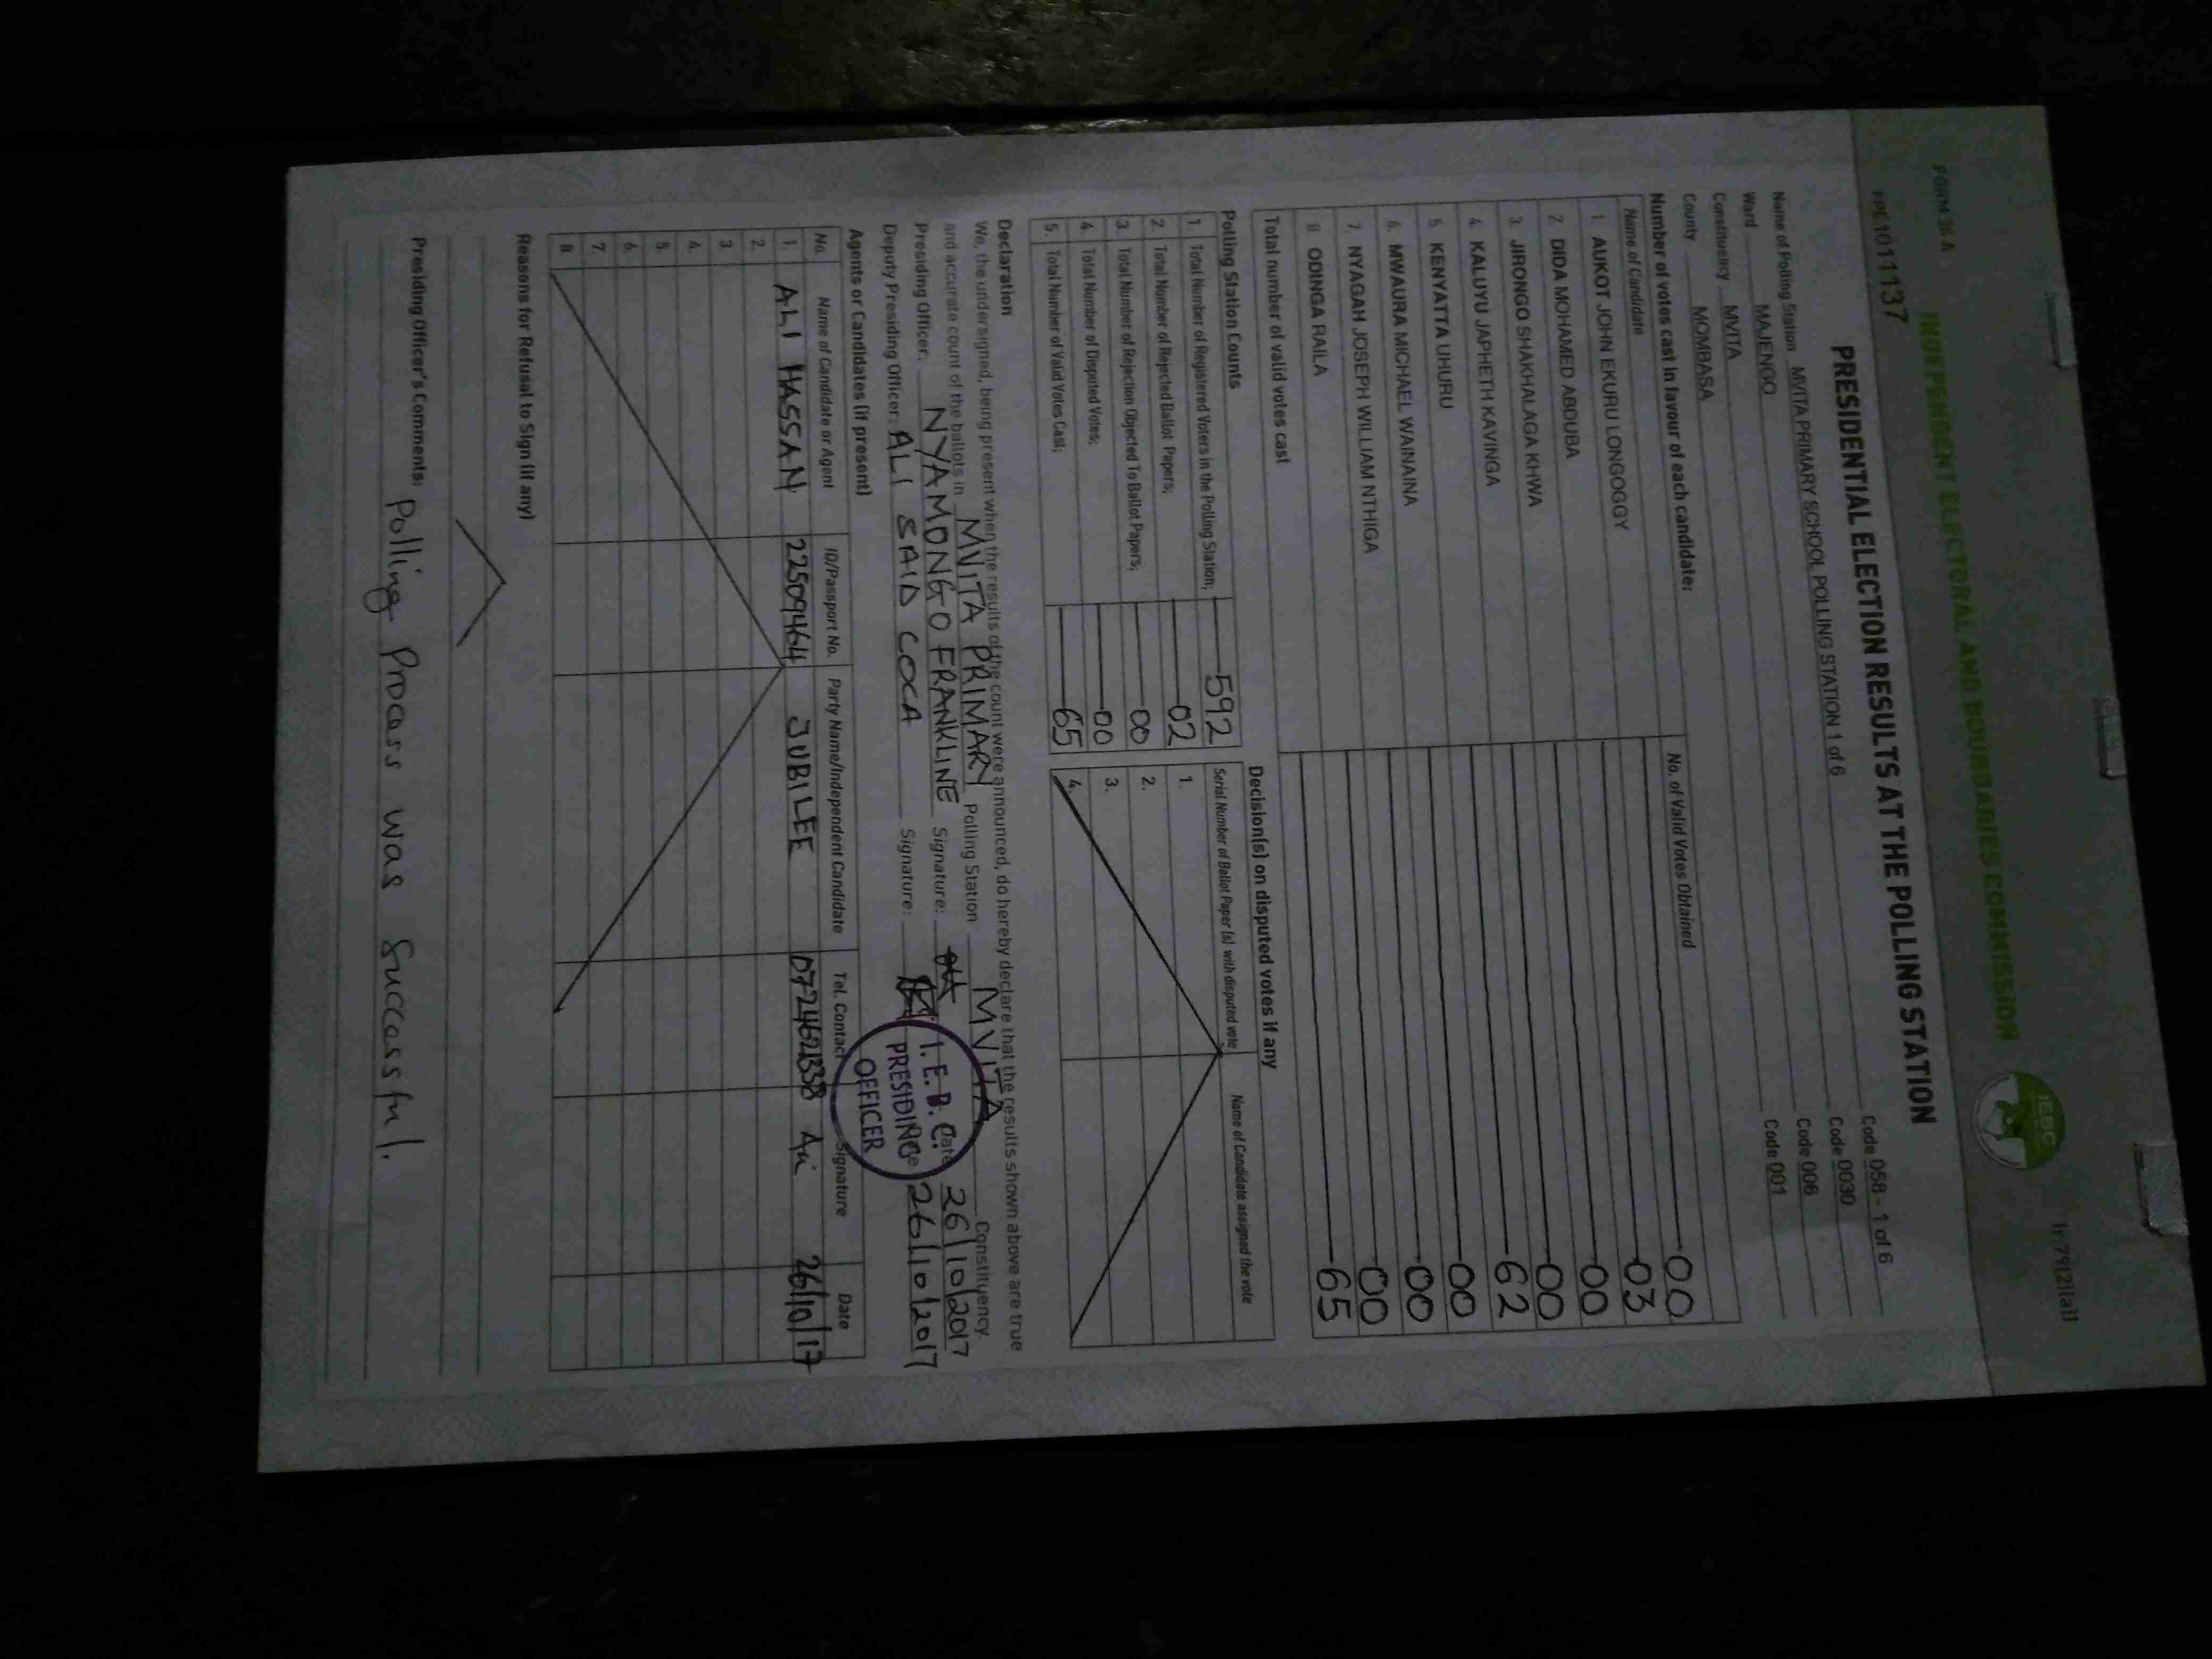 FORM 34 A
INDEPENDENT ELECTORAL AND BOUNDARIES COMMISSION
IEBC
PRESIDENTIAL ELECTION RESULTS AT THE POLLING STATION
Name of Polling Station MVITA PRIMARY SCHOOL POLLING STATION 1 of 6 Code 058 - 1 of 6
Ward MAJENGO Code 0030
Constituency MVITA Code 006
County MOMBASA Code 001
Number of votes cast in favour of each candidate:
Name of Candidate No. of Valid Votes Obtained
1. AUKOT JOHN EKURU LONGOGGY 00
2. DIDA MOHAMED ABDUBA 03
3. JIRONGO SHAKHALAGA KHWA 00
4. KALUYU JAPHETH KAVINGA 00
5. KENYATTA UHURU 62
6. MWAURA MICHAEL WAINAINA 00
7. NYAGAH JOSEPH WILLIAM NTHIGA 00
8. ODINGA RAILA 00
Total number of valid votes cast 65
Polling Station Counts
1. Total Number of Registered Voters in the Polling Station; 592
2. Total Number of Rejected Ballot Papers; 02
3. Total Number of Rejection Objected To Ballot Papers; 00
4. Total Number of Disputed Votes; 00
5. Total Number of Valid Votes Cast; 65
Decision(s) on disputed votes if any
Serial Number of Ballot Paper (s) with disputed vote Name of Candidate assigned the vote
1.
2.
3.
4.
Declaration
We, the undersigned, being present when the results of the count were announced, do hereby declare that the results shown above are true
and accurate count of the ballots in MVITA PRIMARY Polling Station MVITA Constituency.
Presiding Officer: NYAMONGO FRANKLINE Signature: Date 26/10/2017
Deputy Presiding Officer: ALI SAID COCA Signature: 26/10/2017
I.E.B.C.
PRESIDING
OFFICER
Agents or Candidates (if present)
No. Name of Candidate or Agent ID/Passport No. Party Name/Independent Candidate Tel. Contact Signature Date
1. ALI HASSAN 22509464 JUBILEE Ali 26/10/17
2.
3.
4.
5.
6.
7.
8.
Reasons for Refusal to Sign (if any)
Presiding Officer's Comments: Polling Process was successful.